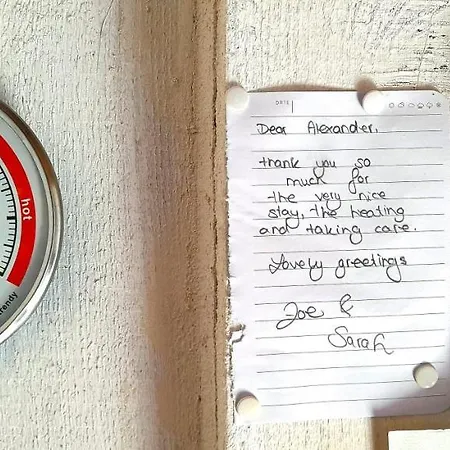 hot
trendy
DATE
Dear Alexander,
thank you so
much for
the very nice
stay, the heating
and taking care.
Lovely greetings
Joe &
Sarah